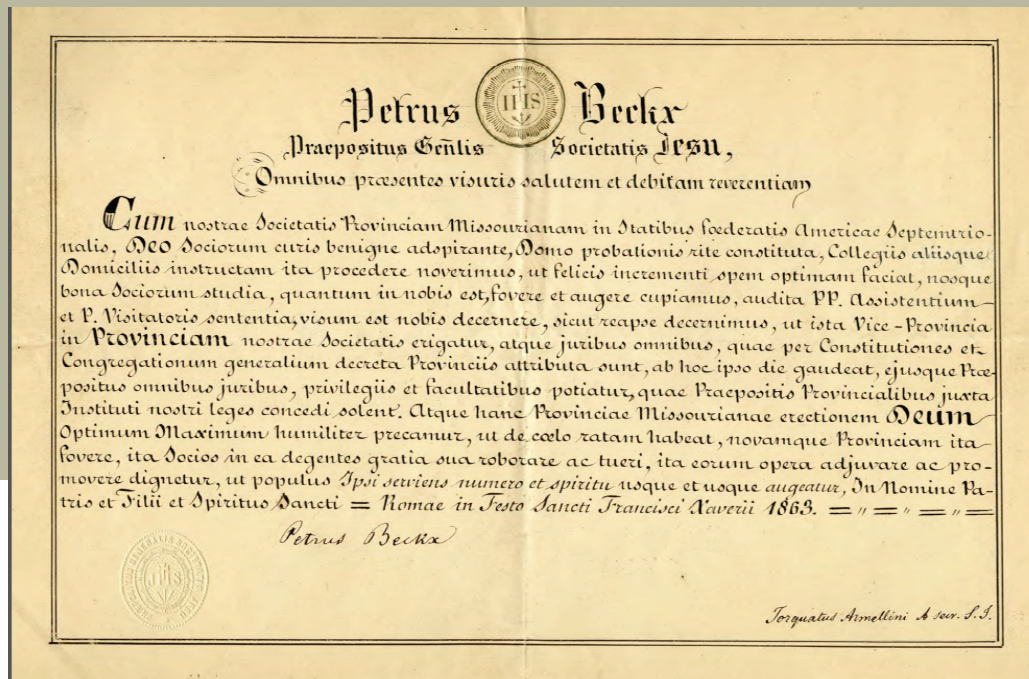 Petrus IHS Beckx
Praepositus Gen̄lis Societatis Jesu,
Omnibus præsentes visuris salutem et debitam reverentiam
Cum nostrae Societatis Provinciam Missourianam in Statibus fœderatis Americae Septemtrio-
nalis, Deo Sociorum curis benigne adspirante, Domo probationis rite constituta, Collegiis aliisque
Domiciliis instructam ita procedere noverimus, ut felicis incrementi spem optimam faciat, nosque
bona Sociorum studia, quantum in nobis est, fovere et augere cupiamus, audita PP. Assistentium
et P. Visitatoris sententia, visum est nobis decernere, sicut reapse decernimus, ut ista Vice-Provincia
in Provinciam nostrae Societatis erigatur, atque juribus omnibus, quae per Constitutiones et
Congregationum generalium decreta Provinciis attributa sunt, ab hoc ipso die gaudeat, ejusque Præ-
positus omnibus juribus, privilegiis et facultatibus potiatur, quae Praepositis Provincialibus juxta
Instituti nostri leges concedi solent. Atque hanc Provinciae Missourianae erectionem Deum
Optimum Maximum humiliter precamur, ut de cœlo ratam habeat, novamque Provinciam ita
fovere, ita Socios in ea degentes gratia sua roborare ac tueri, ita eorum opera adjuvare ac pro-
movere dignetur, ut populus Ipsi serviens numero et spiritu usque et usque augeatur, In Nomine Pa-
tris et Filii et Spiritus Sancti = Romae in Festo Sancti Francisci Xaverii 1863. = " = " = " =
Petrus Beckx
IHS
Torquatus Armellini A secr. S.J.